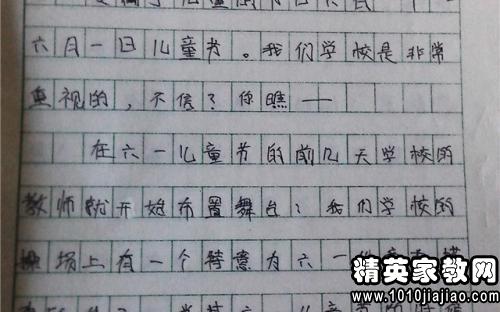 六月一日儿童节。我们学校是非常
重视的，不信？你瞧——
在六一儿童节的前几天学校的
教师就开始布置舞台；我们学校的
操场上有一个特意为六一
精英家教网
www.1010jiajiao.com